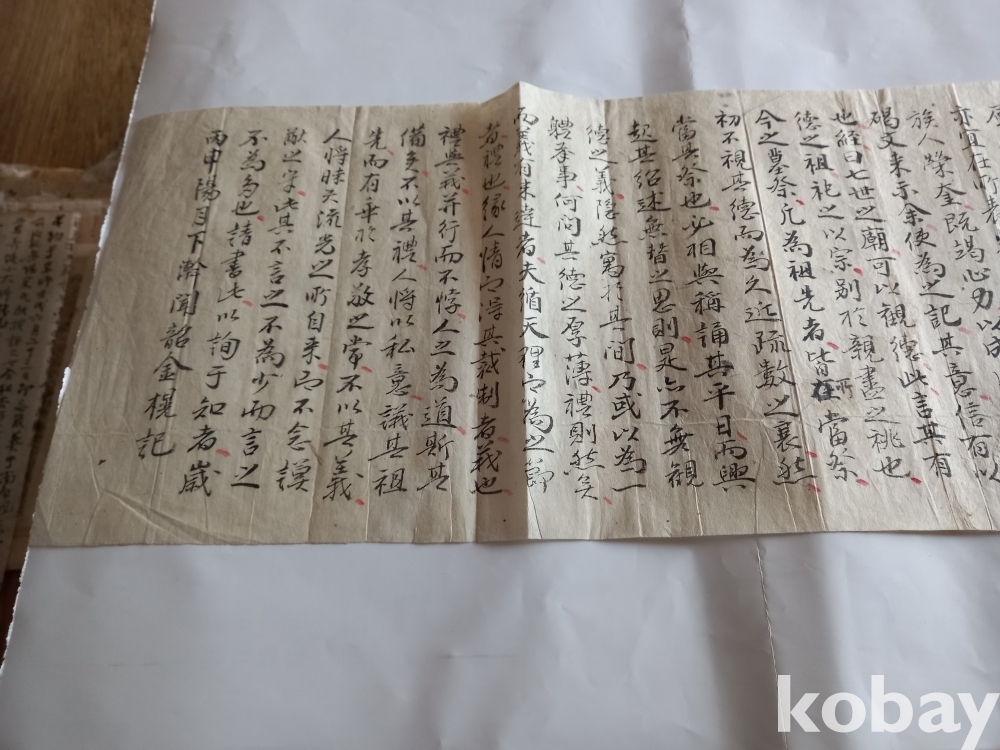 亦宜在所
族人榮奎既竭心力以
碣文来示余使為之記其意信有以
也経曰七世之廟可以観德此言其有
德之祖祀之以宗别於親盡之祧也
今之墓祭凡為祖先者皆在所當祭
初不視其德而為之近疏數之
當其祭也必相與稱誦其平日而興
起其紹述無替之思則是亦不無観
德之義隐然寓於其間乃或以為一
軆奉事何問其德之厚薄禮則然矣
而義有未避者夫循天理而為之節
者禮也緣人情而其裁制者義也
禮與義并行而不悖人之為道斯其
備矣不以其禮人将以私意議其祖
先而有乖於孝敬之常不以其義
人将昧夫流光之所自来而不念謨
猷之字此其不言之不為少而言之
不為多也請書此以詢于知者歲
丙申陽月下澣聞韶金榥記
kobay